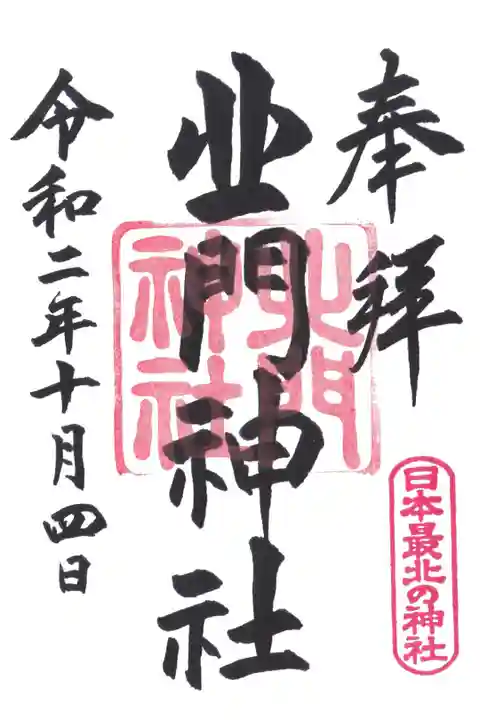 奉拝
日本最北の神社
北門神社
北門神社
令和二年十月四日